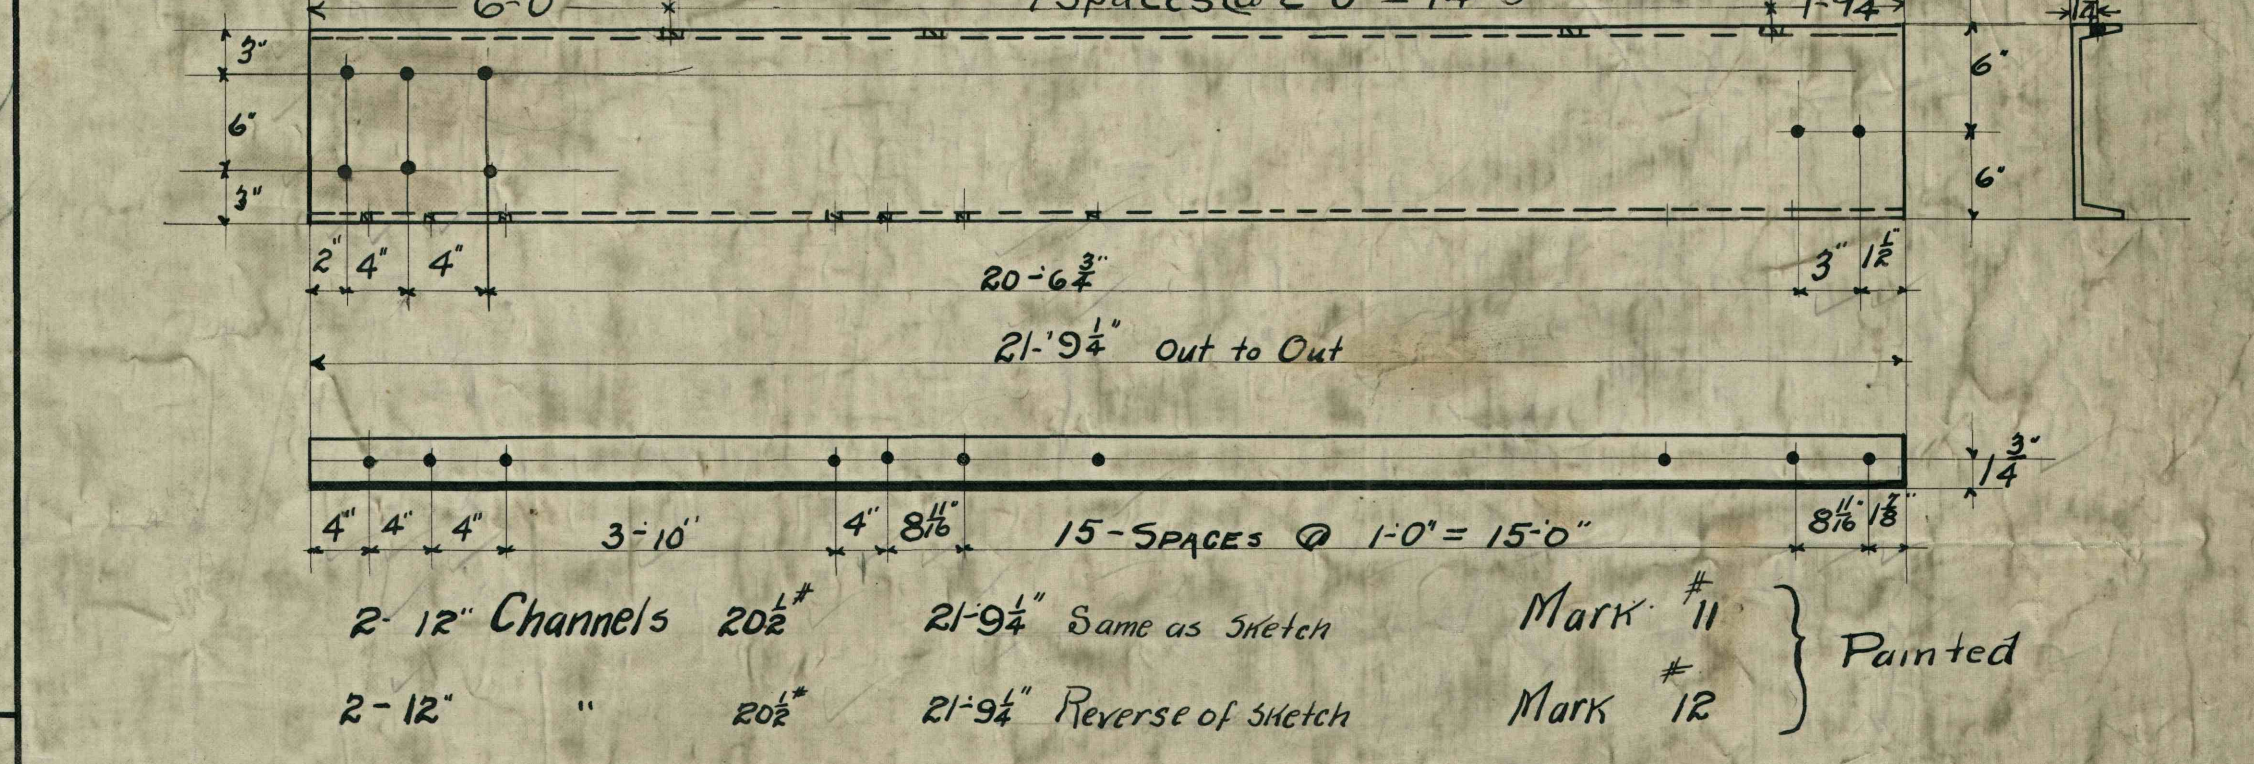 6-0 7 Spaces @ 2-0 = 14-0 1-9¼
3" 6" 3"
6" 6"
2" 4" 4" 20-6 ¾" 3" 1½"
21-9¼" Out to Out
1¾"
4" 4" 4" 3-10" 4" 8 11/16" 15-SPACES @ 1-0" = 15-0" 8 11/16" 1⅞"
2- 12" Channels 20½# 21-9¼" Same as Sketch Mark #11
Painted
2-12" " 20½# 21-9¼" Reverse of Sketch Mark #12